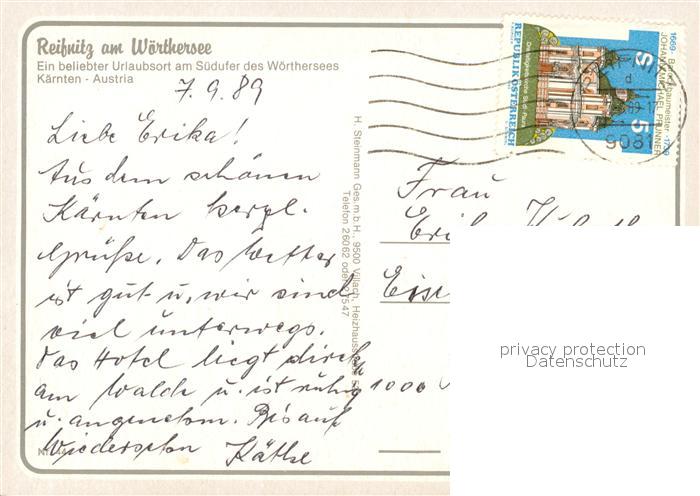 Reifnitz am Wörthersee
Ein beliebter Urlaubsort am Südufer des Wörthersees
Kärnten - Austria
7.9.89
Liebe Erika!
Aus dem schönen
Kärnten herzl.
Grüße. Das Wetter
ist gut u. wir sind
viel unterwegs.
Das Hotel liegt direkt
am Walde u. ist ruhig
u. angenehm. Bis auf
Wiedersehen Käthe
H. Steinmann Ges.m.b.H., 9500 Villach, Heizhausstraße
Telefon 26062 oder 27547
1669 - Barockbaumeister - 1739
JOHANN MICHAEL PRUNNER
S 5
Dreifaltigkeitskirche Stadl-Paura
REPUBLIK ÖSTERREICH
9081
Frau
1000
privacy protection
Datenschutz